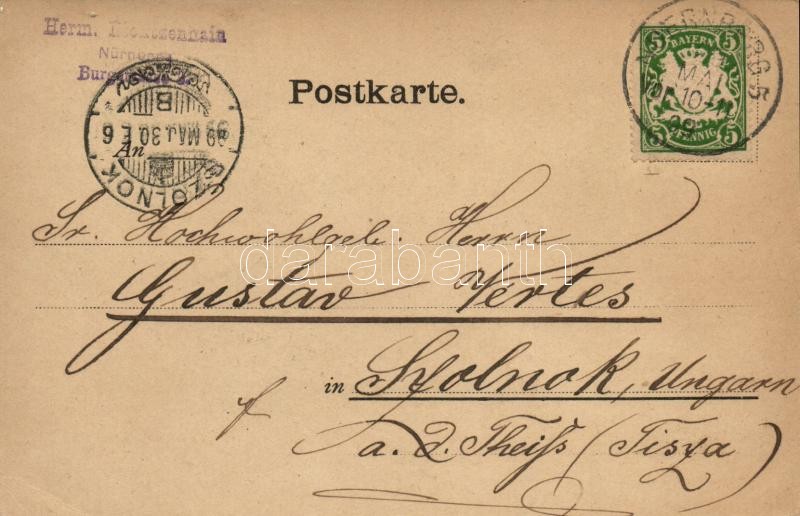 Herm.
Nürnberg
Burg
Postkarte.
NUERNBERG 5
MAI
10-11
BAYERN
5 5
5 PFENNIG 5
SZOLNOK
B
99 MAJ. 30 E. 6
An
Sr. Hochwohlgeb. Herrn
Gustav Vertes
in Szolnok, Ungarn
a. d. Theiss (Tisza)
darabanth